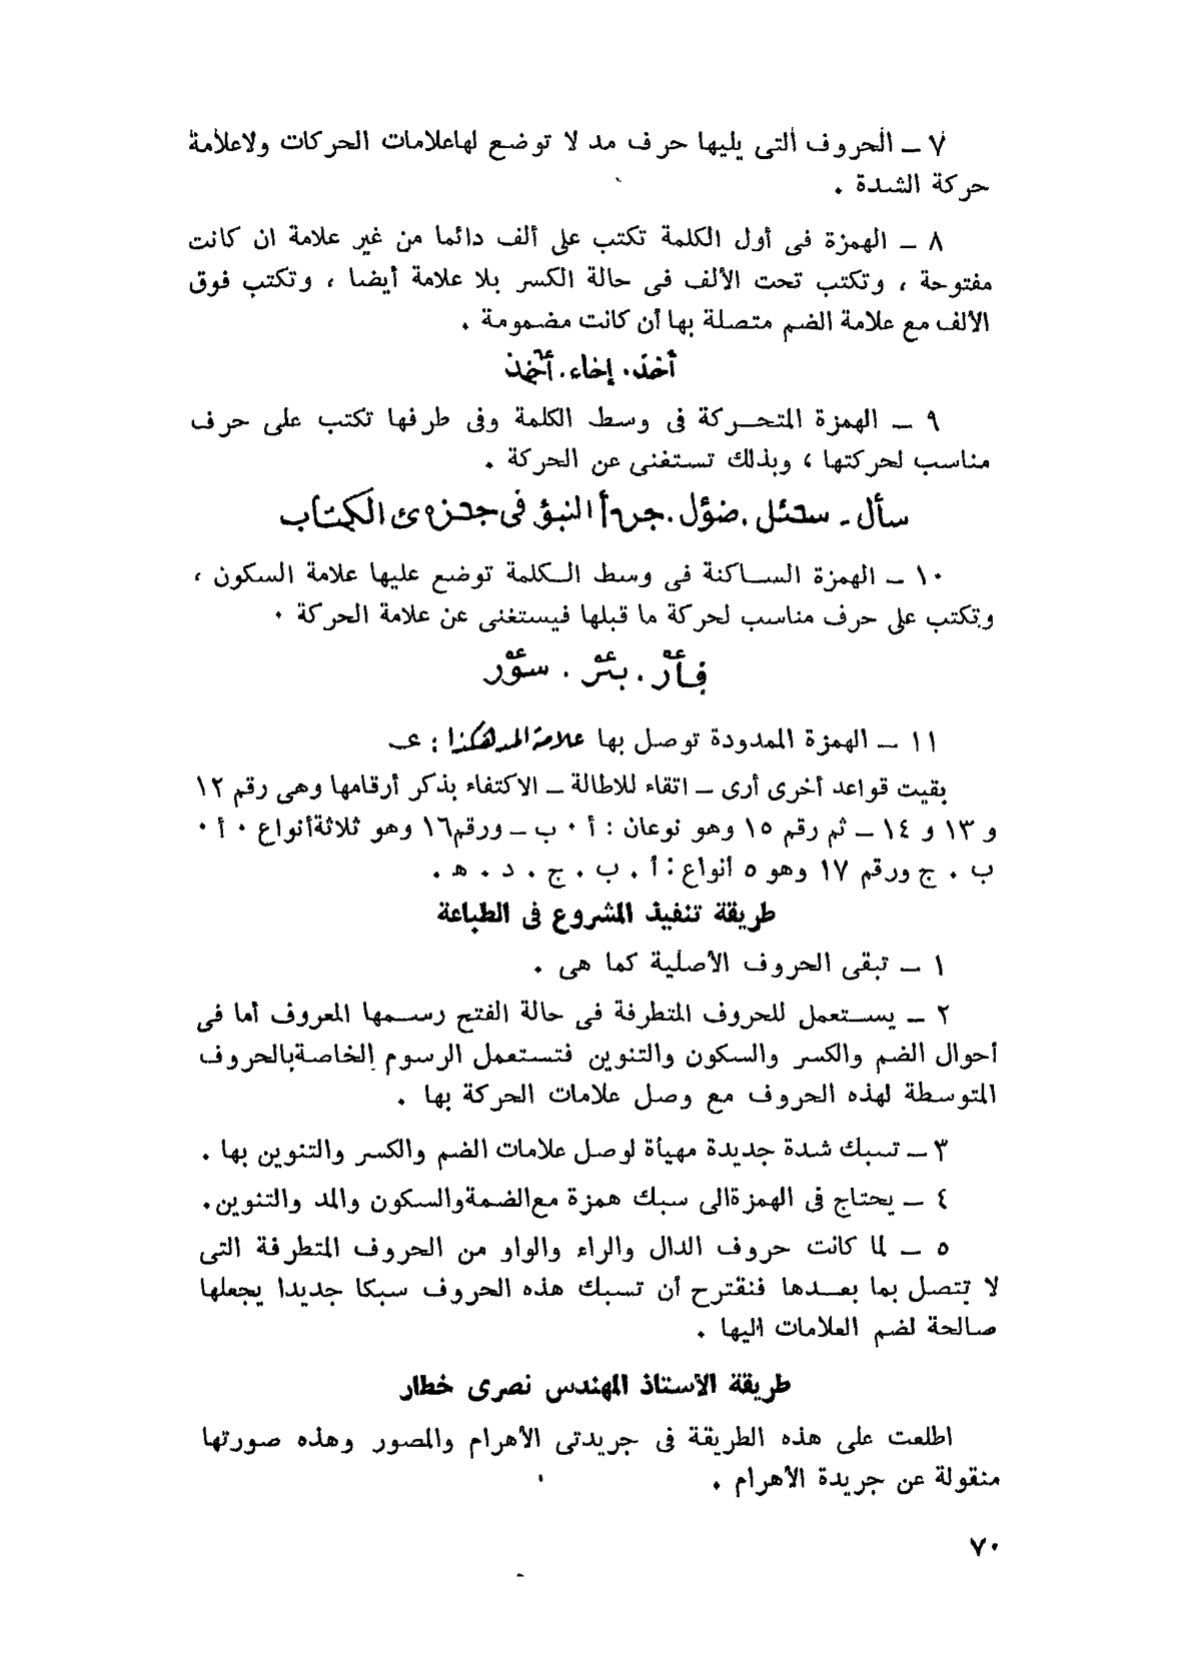 ٧ ــ الحروف التى يليها حرف مد لا توضع لهاعلامات الحركات ولاعلامة
حركة الشدة .
٨ ــ الهمزة فى أول الكلمة تكتب على ألف دائما من غير علامة ان كانت
مفتوحة ، وتكتب تحت الألف فى حالة الكسر بلا علامة أيضا ، وتكتب فوق
الألف مع علامة الضم متصلة بها أن كانت مضمومة .
أخذ. إخاء. أخذ
٩ ــ الهمزة المتحركة فى وسط الكلمة وفى طرفها تكتب على حرف
مناسب لحركتها ، وبذلك تستغنى عن الحركة .
سأل ـ سئل . ضؤل . جرأ النبؤ فى جزئ الكتاب
١٠ ــ الهمزة الساكنة فى وسط الكلمة توضع عليها علامة السكون ،
وتكتب على حرف مناسب لحركة ما قبلها فيستغنى عن علامة الحركة ٠
فأر . بئر . سؤر
١١ ــ الهمزة الممدودة توصل بها علامة المد هكذا :
بقيت قواعد أخرى أرى ــ اتقاء للاطالة ــ الاكتفاء بذكر أرقامها وهى رقم ١٢
و ١٣ و ١٤ ــ ثم رقم ١٥ وهو نوعان : أ ٠ ب ــ ورقم١٦ وهو ثلاثةأنواع ٠ أ ٠
ب . ج ورقم ١٧ وهو ٥ أنواع : أ . ب . ج . د . هـ .
طريقة تنفيذ المشروع فى الطباعة
١ ــ تبقى الحروف الأصلية كما هى .
٢ ــ يستعمل للحروف المتطرفة فى حالة الفتح رسمها المعروف أما فى
أحوال الضم والكسر والسكون والتنوين فتستعمل الرسوم الخاصةبالحروف
المتوسطة لهذه الحروف مع وصل علامات الحركة بها .
٣ ــ تسبك شدة جديدة مهيأة لوصل علامات الضم والكسر والتنوين بها .
٤ ــ يحتاج فى الهمزةالى سبك همزة مع الضمةوالسكون والمد والتنوين.
٥ ــ لما كانت حروف الدال والراء والواو من الحروف المتطرفة التى
لا تتصل بما بعدها فنقترح أن تسبك هذه الحروف سبكا جديدا يجعلها
صالحة لضم العلامات اليها .
طريقة الأستاذ المهندس نصرى خطار
اطلعت على هذه الطريقة فى جريدتى الأهرام والمصور وهذه صورتها
منقولة عن جريدة الأهرام .
٧٠